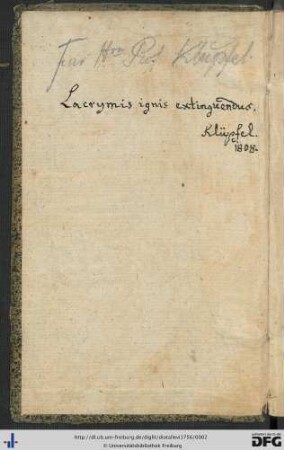 Herr Prof Klüpfel
Lacrymis ignis extinguendus.
Klüpfel.
1808.
http://dl.ub.uni-freiburg.de/diglit/diatalevi1756/0002
© Universitätsbibliothek Freiburg
DFG